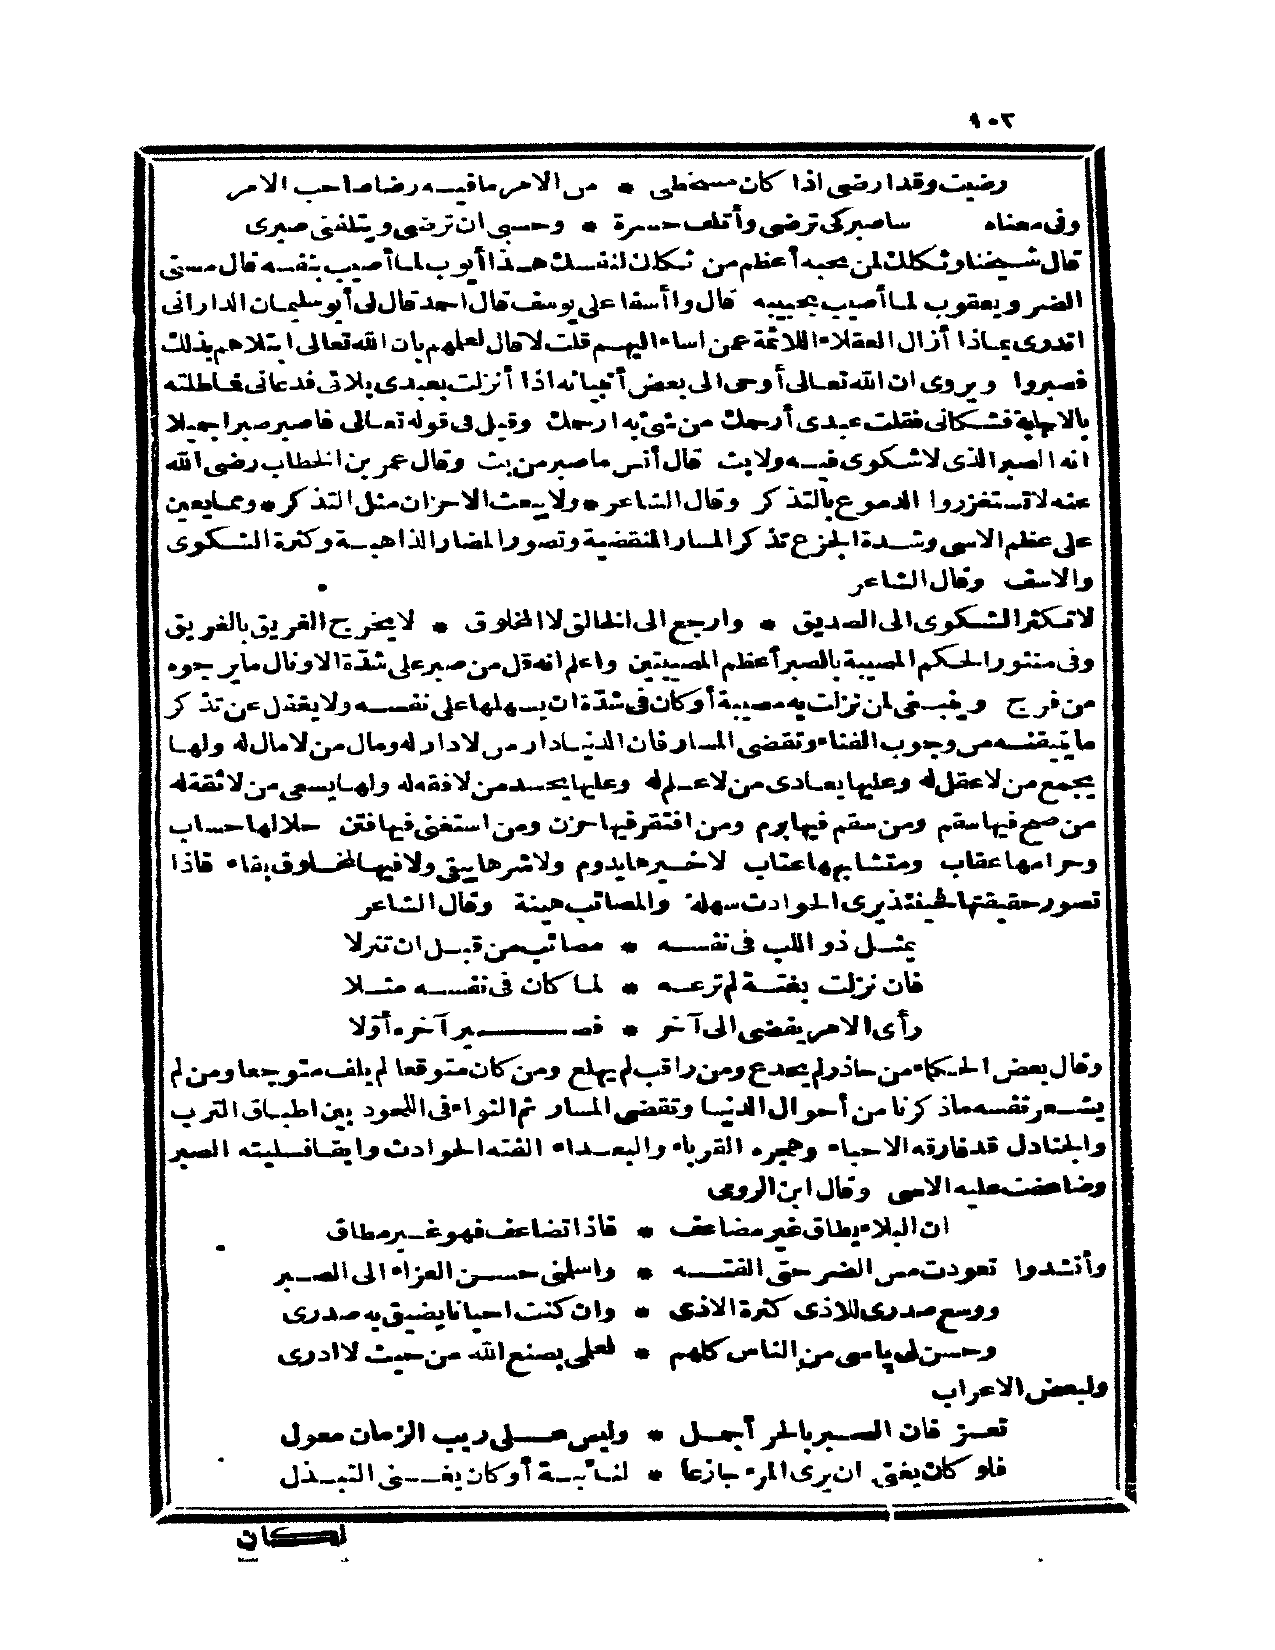 ١٠٢
رضيت وقد ارضى اذا كان مسخطى * من الامر ما فيه رضا صاحب الامر
وفى معناه ساصبر كى ترضى وأتلف حسرة * وحسبى ان ترضى ويتلفنى صبرى
قال شيخنا وثكلك لمن تحبه أعظم من ثكلان لنفسك هذا أيوب لما أصيب بنفسه قال مسنى
الضر ويعقوب لما أصيب بحبيبه قال وا أسفا على يوسف قال احمد قال لى أبو سليمان الدارانى
اتدرى بماذا أزال العقلاء اللائمة عمن اساء اليهم قلت لا قال لعلهم بان الله تعالى ابتلاهم بذلك
فصبروا ويروى ان الله تعالى أوحى الى بعض أنبيائه اذا أنزلت بعبدى بلائى فدعانى فماطلته
بالاجابة فشكانى فقلت عبدى أرحمك من شئ به ارحمك وقيل فى قوله تعالى فاصبر صبرا جميلا
انه الصبر الذى لا شكوى فيه ولا بث قال أنس ما صبر من بث وقال عمر بن الخطاب رضى الله
عنه لا تستغزروا الدموع بالتذكر وقال الشاعر * ولا يبعث الاحزان مثل التذكر * ومما يعين
على عظم الاسى وشدة الجزع تذكر المسار المنقضية وتصور المضار الذاهبة وكثرة الشكوى
والاسف وقال الشاعر
لا تكثر الشكوى الى الصديق * وارجع الى الخالق لا المخلوق * لا يخرج الغريق بالغريق
وفى منثور الحكم المصيبة بالصبر أعظم المصيبتين واعلم انه قل من صبر على شدة الا ونال ما يرجوه
من فرج وينبغى لمن نزلت به مصيبة أو كان فى شدة ان يسهلها على نفسه ولا يغفل عن تذكر
ما يتيقنه من وجوب الفناء وتقضى المسار فان الدنيا دار من لا دار له ومال من لا مال له ولها
يجمع من لا عقل له وعليها يعادى من لا علم له وعليها يحسد من لا فقه له ولها يسعى من لا ثقة له
من صح فيها سقم ومن سقم فيها برم ومن افتقر فيها حزن ومن استغنى فيها فتن حلالها حساب
وحرامها عقاب ومتشابهها عتاب لا خيرها يدوم ولا شرها يبقى ولا فيها لمخلوق بقاء فاذا
تصور حقيقتها فحينئذ يرى الحوادث سهلة والمصائب هينة وقال الشاعر
يمثل ذو اللب فى نفسه * مصائب من قبل ان تنزلا
فان نزلت بغتة لم ترعه * لما كان فى نفسه مثلا
رأى الامر يفضى الى آخر * فصير آخره أولا
وقال بعض الحكماء من حاذر لم يخدع ومن راقب لم يهلع ومن كان متوقعا لم يلف متوجعا ومن لم
يشعر نفسه ما ذكرنا من أحوال الدنيا وتقضى المسار ثم الثواء فى اللحود بين اطباق الترب
والجنادل قد فارقه الاحباء وهجره القرباء والبعداء الفته الحوادث وايقا فسلبته الصبر
وضاعفت عليه الاسى وقال ابن الرومى
ان البلاء يطاق غير مضاعف * فاذا تضاعف فهو غير مطاق
وأنشدوا تعودت مس الضر حتى الفته * واسلمنى حسن العزاء الى الصبر
ووسع صدرى للاذى كثرة الاذى * وان كنت احيانا يضيق به صدرى
وحسن لى يأسى من الناس كلهم * لعلمى بصنع الله من حيث لا ادرى
ولبعض الاعراب
تعز فان الصبر بالحر أجمل * وليس على ريب الزمان معول
فلو كان يغنى ان يرى المرء جازعا * لنائبة أو كان يغنى التبذل
لكان